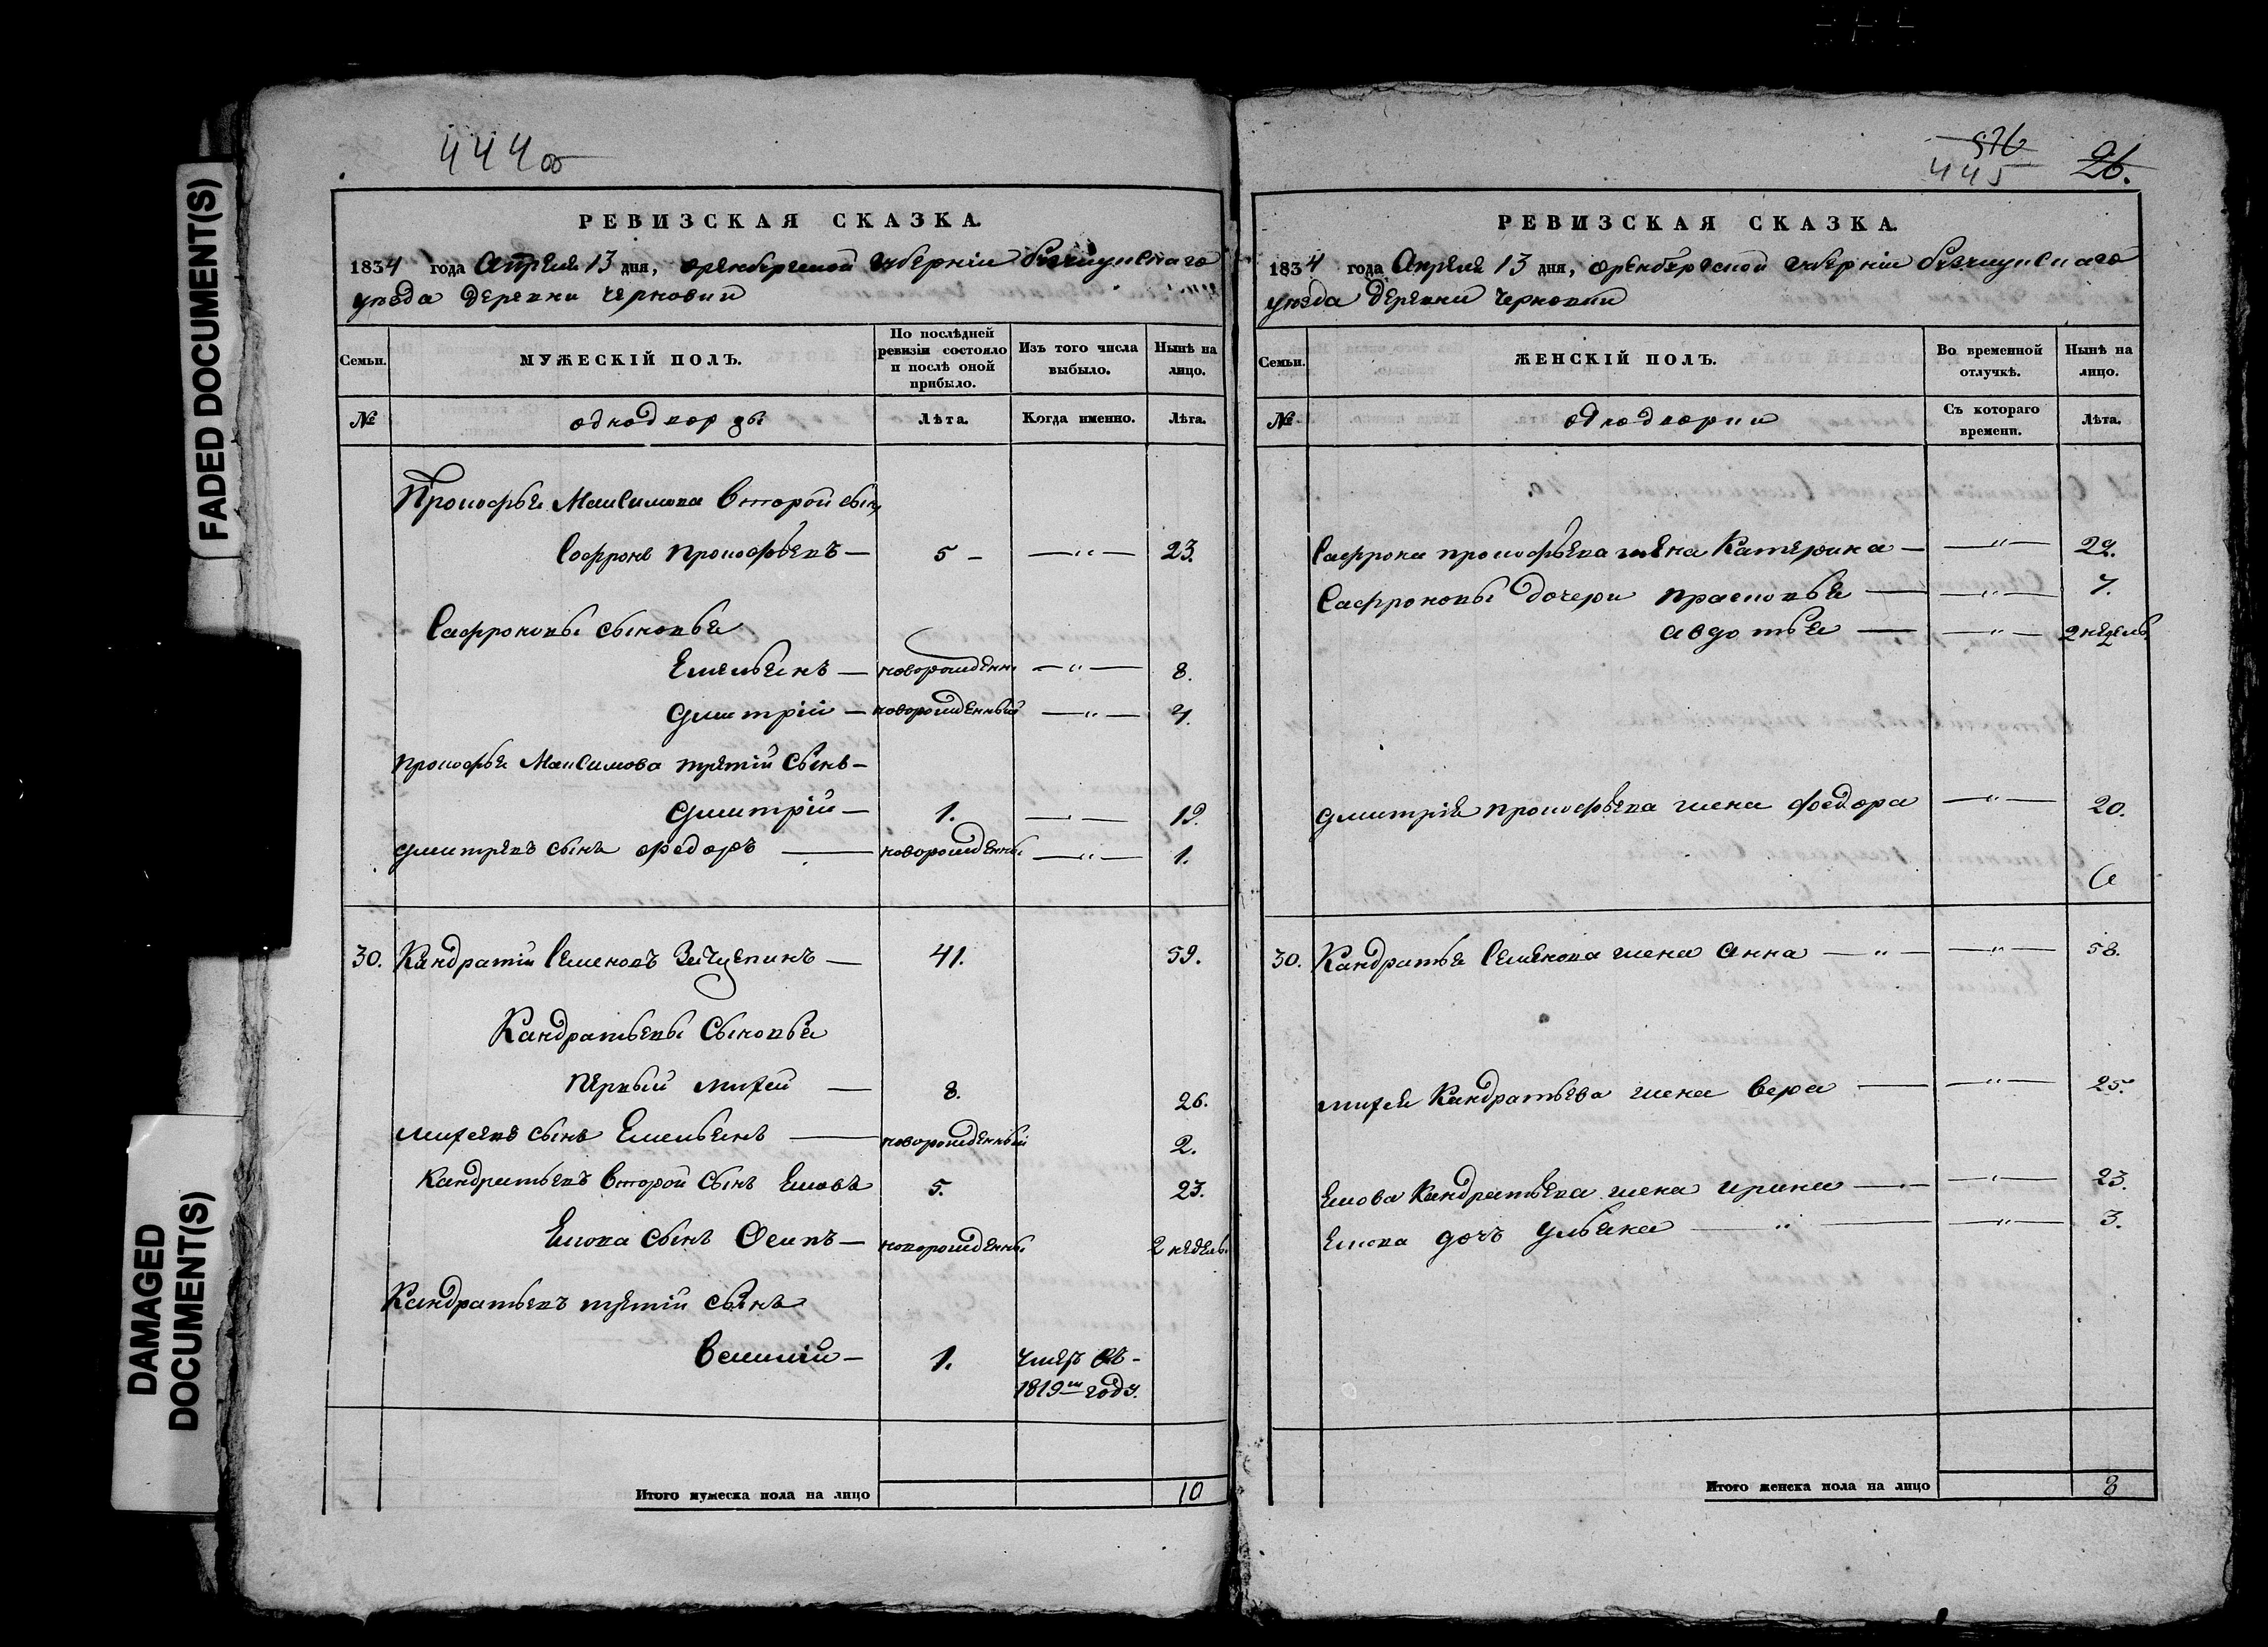 FADED DOCUMENT(S)
DAMAGED
DOCUMENT(S)
444об
РЕВИЗСКАЯ СКАЗКА.
1834 года Апреля 13 дня, оренбергской губерніи
уезда деревни Черновки
Семьи.
МУЖЕСКІЙ ПОЛЪ.
По послѣдней
ревизіи состояло
и послѣ оной
прибыло.
Изъ того числа
выбыло.
Нынѣ на
лицо.
№
однодворцы
Лѣта.
Когда именно.
Лѣта.
Прокофья Максимова Второй сынъ
Софронъ прокофьевъ — 5 — —"— 23.
Сафроновы сыновья
Емельянъ — новорожденны —"— 8.
Дмитрій — новорожденный —"— 4.
прокофья Максимова третій Сынъ —
Дмитрій — 1. —"— 19.
Дмитревъ сынъ Федоръ — новорожденны —"— 1.
30. Кандратий Семеновъ — 41. 59.
Кандратьевы Сыновья
первый михей — 8. 26.
михеевъ сынъ Емельянъ — новорожденный 2.
Кандратьевъ Второй Сынъ Ековъ 5. 23.
Екова Сынъ Осипъ — новорожденны 2 недель.
Кандратьевъ третій сынъ
— 1. Умеръ въ —
1819м году.
Итого мужеска пола на лицо 10
576
445
26.
РЕВИЗСКАЯ СКАЗКА.
1834 года Апреля 13 дня, оренбергской губерніи
уезда деревни Черновки
Семьи.
ЖЕНСКІЙ ПОЛЪ.
Во временной
отлучкѣ.
Нынѣ на
лицо.
№
однодворки
Съ котораго
времени.
Лѣта.
Сафрона прокофьева жена Катерина — —"— 22.
Сафроновы дочери прасковья — —"— 7.
авдотья — —"— 2 недель.
Дмитрія прокофьева жена федора —"— 20.
30. Кандратья Семенова жена Анна — " — —"— 58.
михея Кандратьева жена Вера — —"— 25.
Екова Кандратьева жена ирина — —"— 23.
Екова дочь Ульяна — " — —"— 3.
Итого женска пола на лицо 8